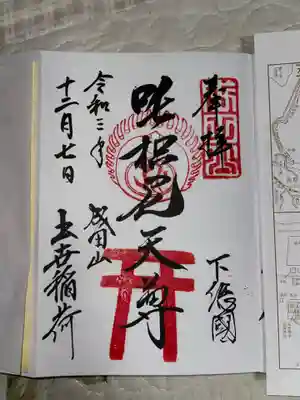 奉拝
下総國
吒枳尼天尊
令和三年
成田山
十二月七日
出世稲荷